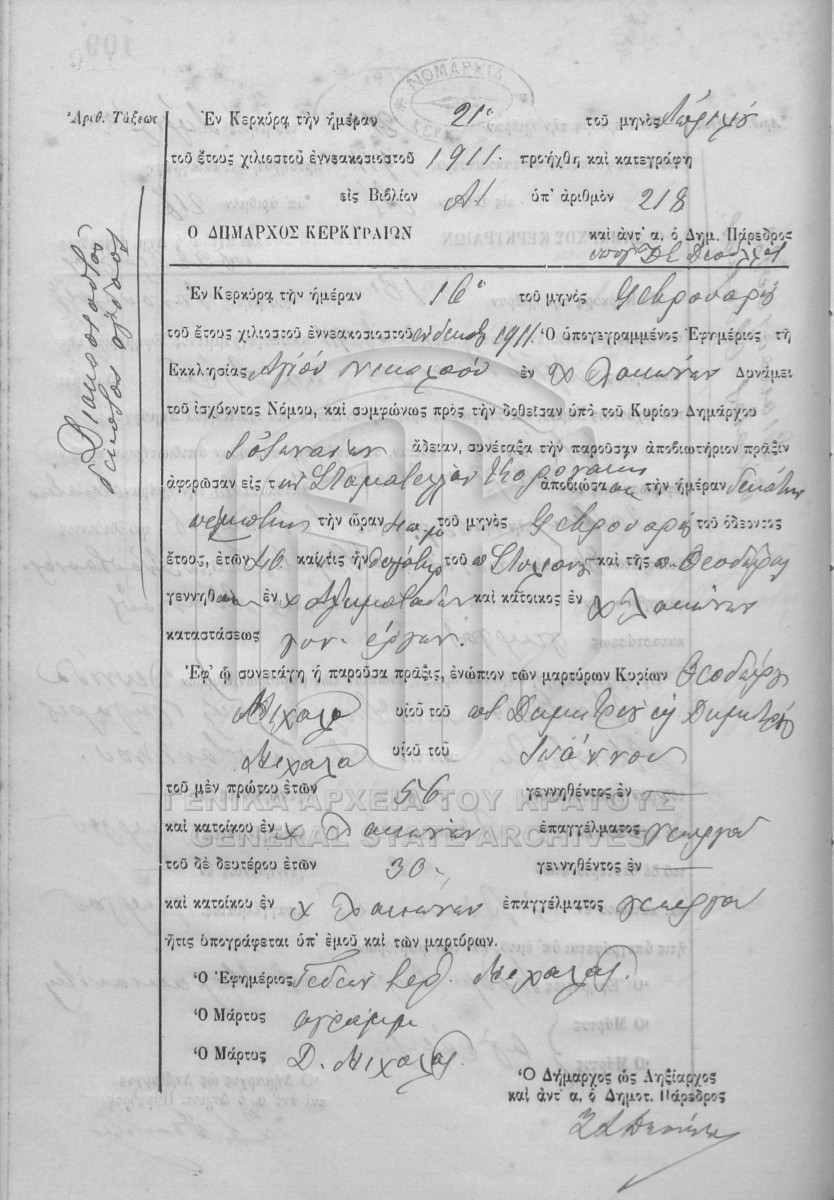 109
ΝΟΜΑΡΧΙΑ
ΚΕΡΚ
Ἀριθ. Τάξεως
Ἐν Κερκύρᾳ τὴν ἡμέραν 21ῃ τοῦ μηνὸς Ἀπριλίου
τοῦ ἔτους χιλιοστοῦ ἐννεακοσιοστοῦ 1911. προήχθη καὶ κατεγράφη
εἰς Βιβλίον Α1 ὑπ' ἀριθμὸν 218
Ὁ ΔΗΜΑΡΧΟΣ ΚΕΡΚΥΡΑΙΩΝ καὶ ἀντ' α. ὁ Δημ. Πάρεδρος
Ἐν Κερκύρᾳ τὴν ἡμέραν 16ῃ τοῦ μηνὸς Φεβρουαρίου
τοῦ ἔτους χιλιοστοῦ ἐννεακοσιοστοῦ ἑνδεκάτου 1911. Ὁ ὑπογεγραμμένος Ἐφημέριος τῆς
Ἐκκλησίας Ἁγίου Νικολάου ἐν χ Λακώνων Δυνάμει
τοῦ ἰσχύοντος Νόμου, καὶ συμφώνως πρὸς τὴν δοθεῖσαν ὑπὸ τοῦ Κυρίου Δημάρχου
ἄδειαν, συνέταξα τὴν παροῦσαν ἀποβιωτήριον πρᾶξιν
ἀφορῶσαν εἰς τὴν Σταματέλλαν ἀποβιώσασαν τὴν ἡμέραν δεκάτην
πέμπτην τὴν ὥραν π.μ. τοῦ μηνὸς Φεβρουαρίου τοῦ ὁδεύοντος
ἔτους, ἐτῶν καὶ ἥτις ἦν θυγάτηρ τοῦ π Στυλιανοῦ καὶ τῆς π. Θεοδώρας
γεννηθεῖσα ἐν χ Ἀλειματάδων καὶ κάτοικος ἐν χ Λακώνων
καταστάσεως γυν. ἔργων.
Ἐφ' ᾧ συνετάγη ἡ παροῦσα πρᾶξις, ἐνώπιον τῶν μαρτύρων Κυρίων Θεοδώρου
Μιχαλᾶ υἱοῦ τοῦ ποτὲ Δημητρίου καὶ Δημητρίου
Μιχαλᾶ υἱοῦ τοῦ Ἰωάννου
τοῦ μὲν πρώτου ἐτῶν 56 γεννηθέντος ἐν —
ΓΕΝΙΚΑ ΑΡΧΕΙΑ ΤΟΥ ΚΡΑΤΟΥΣ
καὶ κατοίκου ἐν χ Λακώνων ἐπαγγέλματος γεωργοῦ
GENERAL STATE ARCHIVES
τοῦ δὲ δευτέρου ἐτῶν 30 γεννηθέντος ἐν —
καὶ κατοίκου ἐν χ Λακώνων ἐπαγγέλματος γεωργοῦ
ἥτις ὑπογράφεται ὑπ' ἐμοῦ καὶ τῶν μαρτύρων.
Ὁ Ἐφημέριος Γεδεὼν Ἱερ. Μιχαλᾶς.
Ὁ Μάρτυς ἀγράμμ
Ὁ Μάρτυς Δ. Μιχαλᾶς.
Ὁ Δήμαρχος ὡς Ληξίαρχος
καὶ ἀντ' α. ὁ Δημοτ. Πάρεδρος